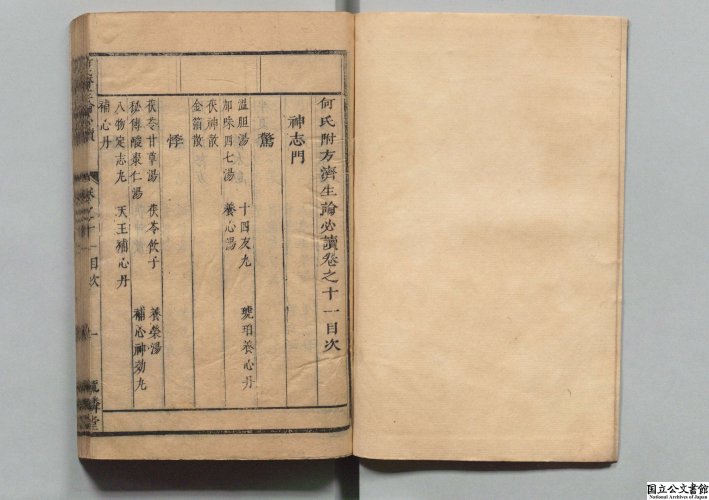 何氏附方濟生論必讀卷之十一目次
神志門
驚
溫胆湯 十四友丸 琥珀養心丹
加味四七湯 養心湯
茯神散
金箔散
悸
茯苓甘草湯 茯苓飲子 養榮湯
秘傳酸棗仁湯 補心神効丸
八物定志丸 天王補心丹
補心丹
卷之十一目次 一
国立公文書館
National Archives of Japan